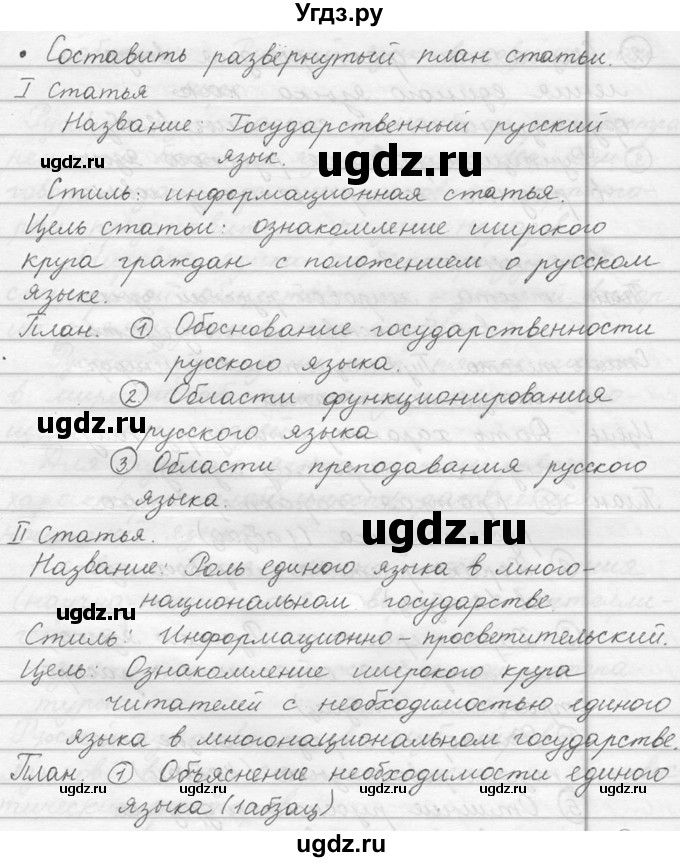 Угдз.ру
• Составить развёрнутый план статьи.
I Статья
Название: Государственный русский
язык.
ugdz.ru
Стиль: информационная статья.
Цель статьи: ознакомление широкого
круга граждан с положением о русском
языке.
План. ① Обоснование государственности
русского языка.
ugdz.ru
② Области функционирования
ugdz.ru
русского языка
③ Области преподавания русского
языка.
ugdz.ru
II Статья.
Название: Роль единого языка в много-
национальном государстве.
ugdz.ru
Стиль: Информационно – просветительский.
Цель: Ознакомление широкого круга
читателей с необходимостью единого
языка в многонациональном государстве.
План. ① Объяснение необходимости единого
языка (1 абзац)
ugdz.ru
ugdz.ru